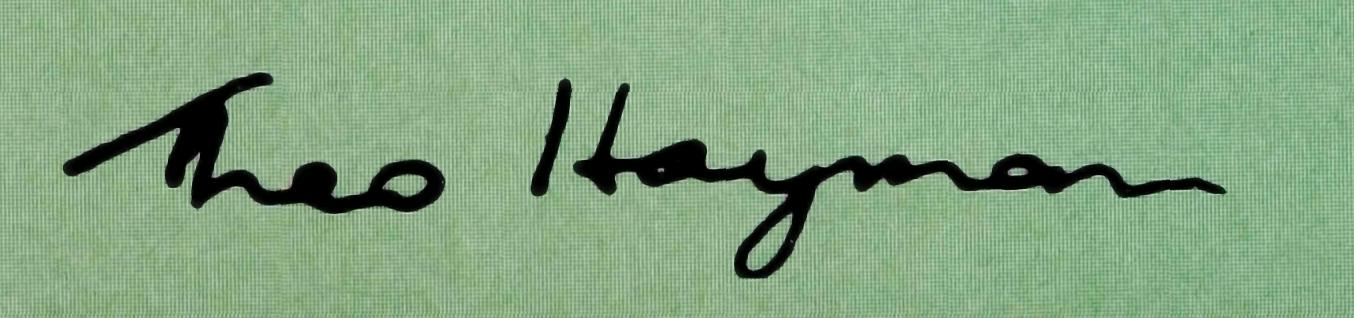 Theo Hayman